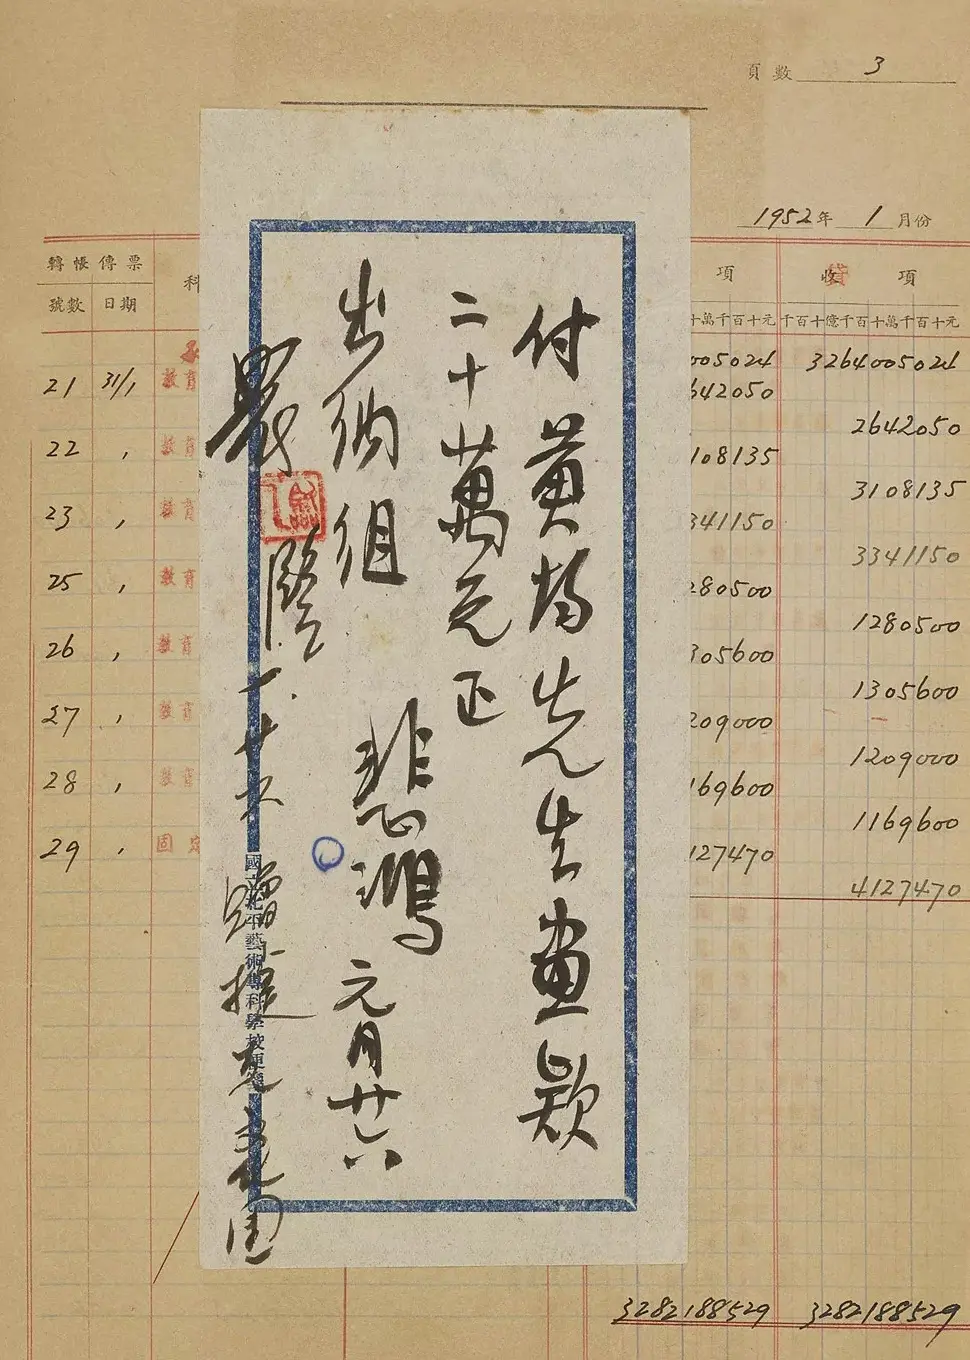 頁數 3
1952年 1月份
付黄均先生画欵
二十萬元正
出納組
悲鴻 元月廿六
國立北平藝術專科學校便箋
轉帳傳票 科 項 收 項
號數 日期 十萬千百十元 千百十億千百十萬千百十元
005024 3264005024
21 31/1 教育 642050
2642050
22 , 教育 108135
3108135
23 , 教育 341150
3341150
25 , 教育 280500
1280500
26 , 教育 305600
1305600
27 , 教育 209000
1209000
28 , 教育 169600
1169600
29 , 固定 127470
4127470
3282188529 3282188529